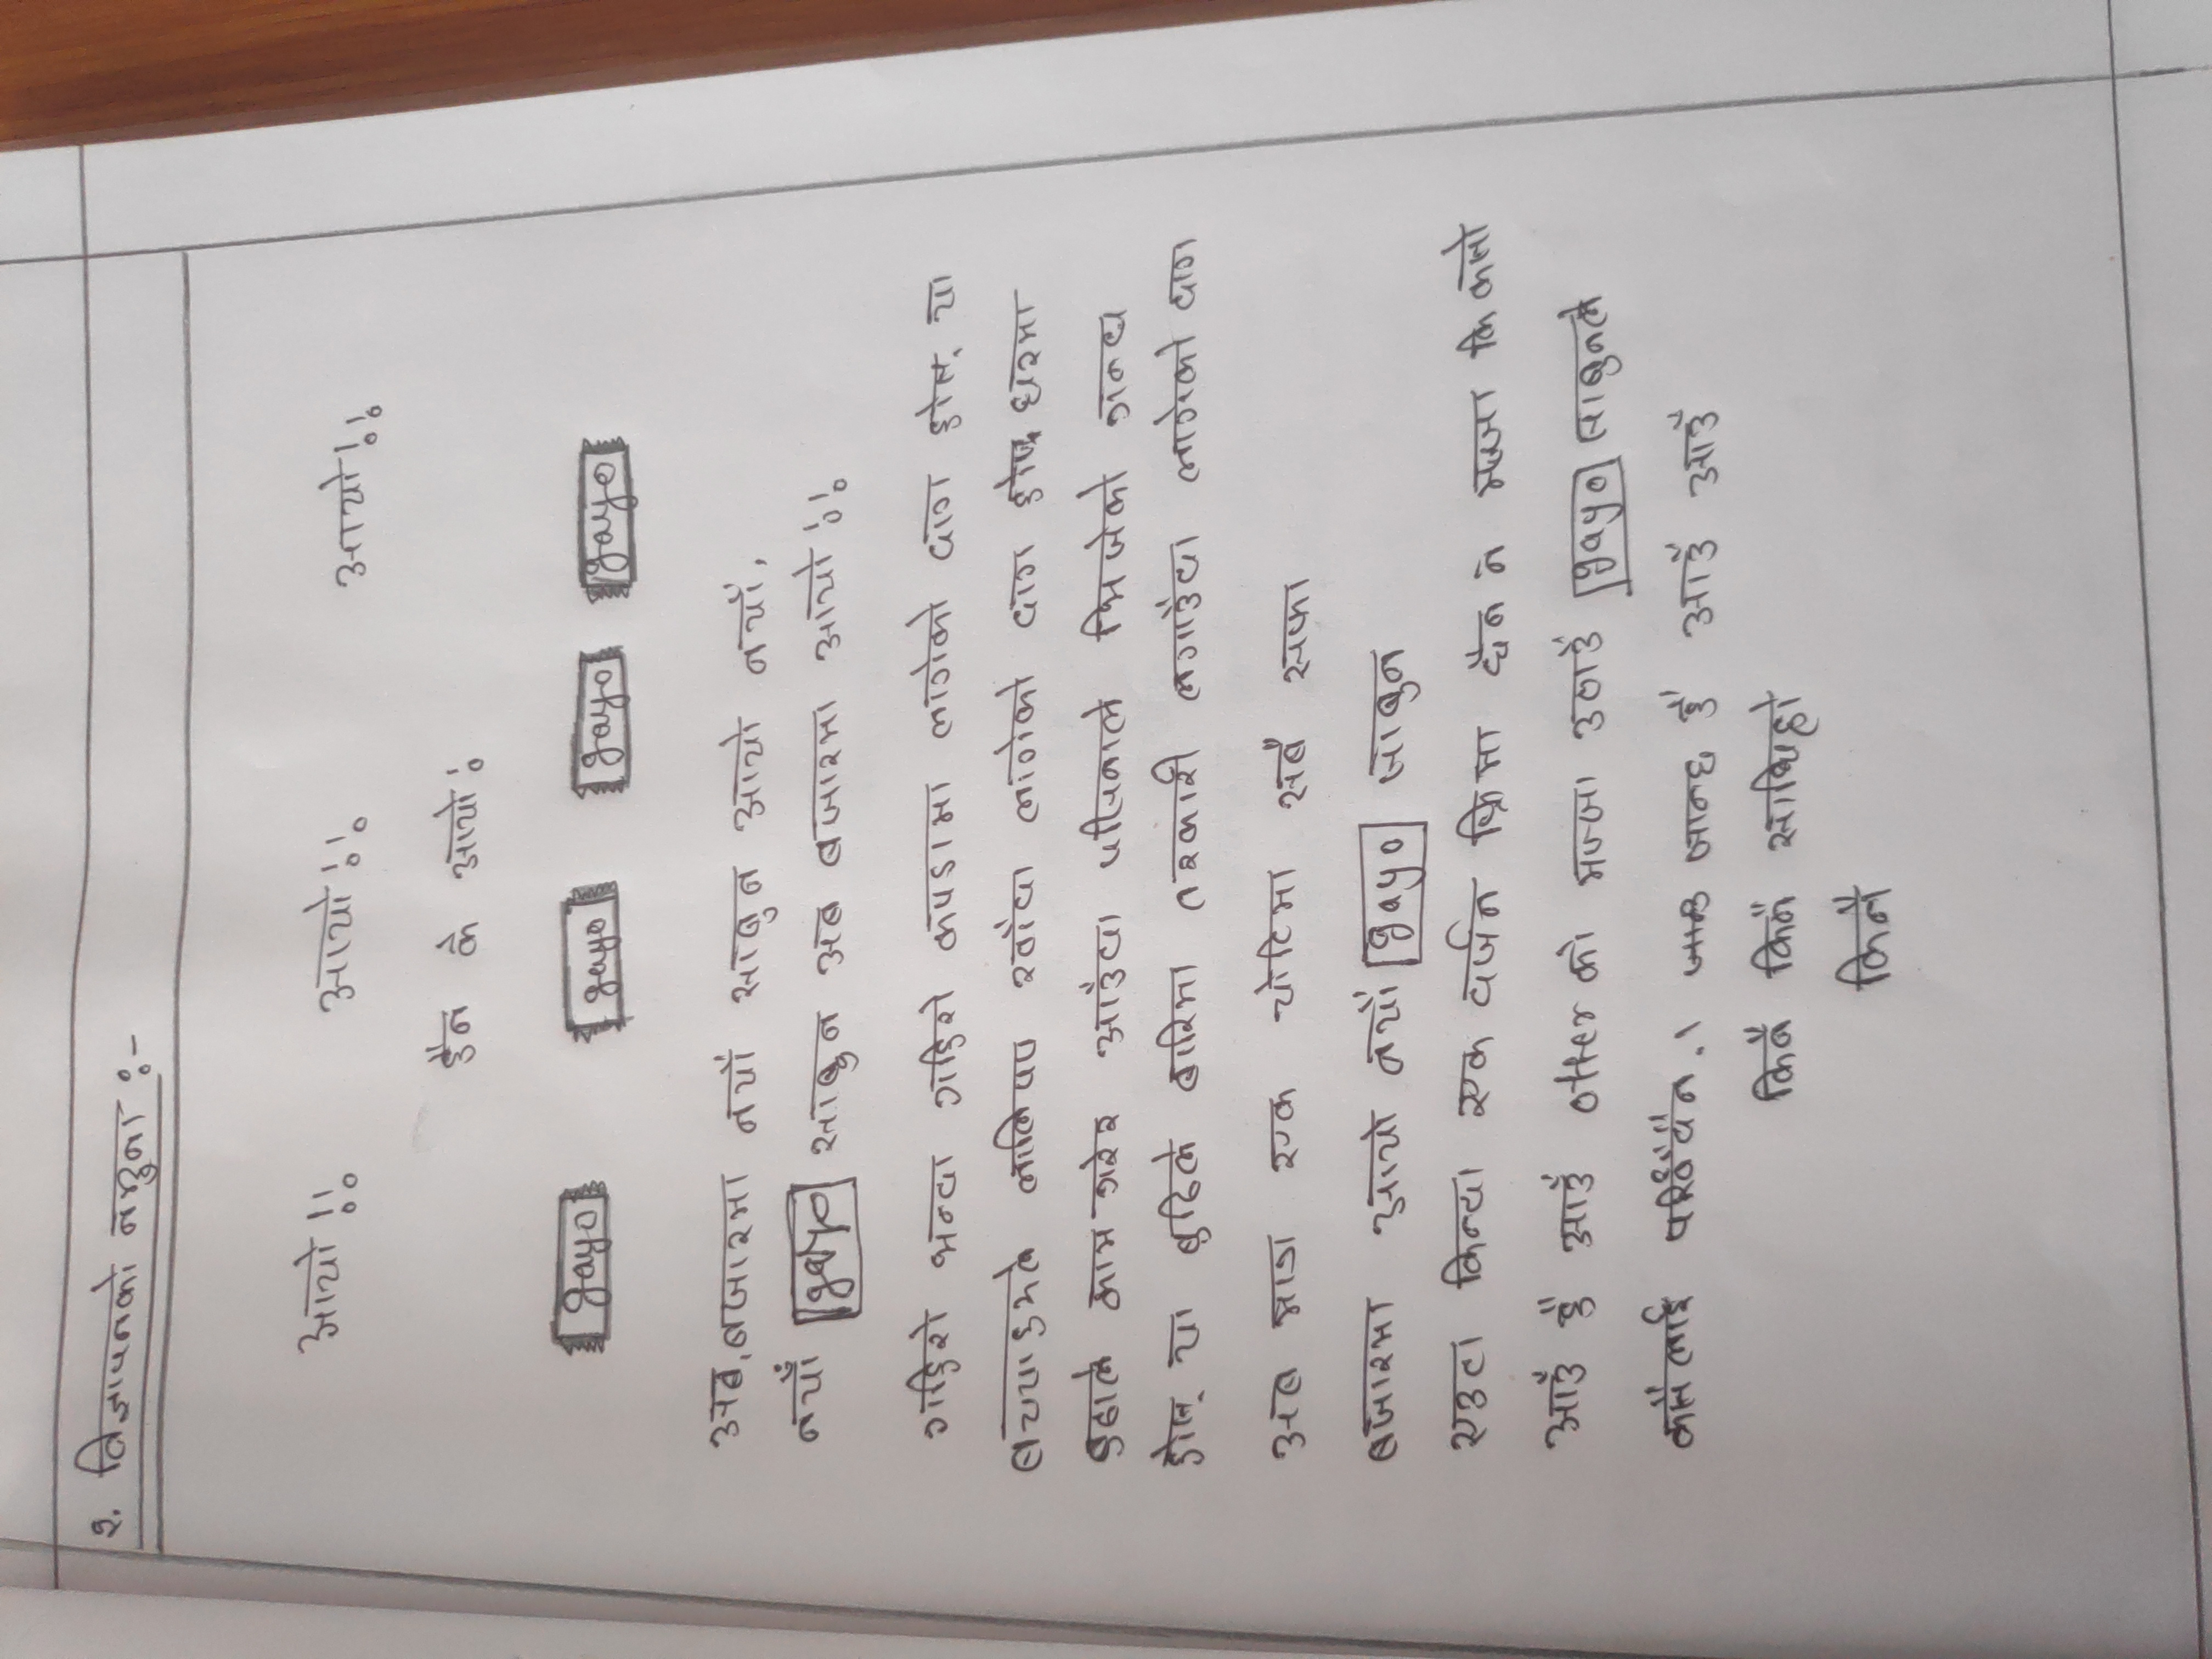 २. विज्ञापनको नमुना :-
आयो!! आयो!! आयो!!
हैन के आयो!
gayo gayo gayo gayo
अब, बजारमा नयाँ साबुन आयो नयाँ,
नयाँ gayo साबुन अब बजारमा आयो!!
गहिरो भन्दा गहिरो कपडामा लागेको दाग होस्, या
बच्चाहरुले ललिपप खाँदा लागेको दाग होस् घरमा
बुढाले काम गरेर आउँदा पसिनाले भिजेको गन्ध
होस् या बुढिले बारिमा तरकारी लगाउँदा लागेको दाग
अब मात्र एक चोटिमा सबै सफा
बजारमा आयो नयाँ gayo साबुन
एउटा किन्दा एक दर्जन फ्रिमा छैन न मज्जा कि कसो
आउँ है आउँ offer को मज्जा उठाउँ gayo साबुनले
कसैलाई पर्खिदैन । जान्छ है आउँ आउँ
किनै किनै साथिहो
किनै